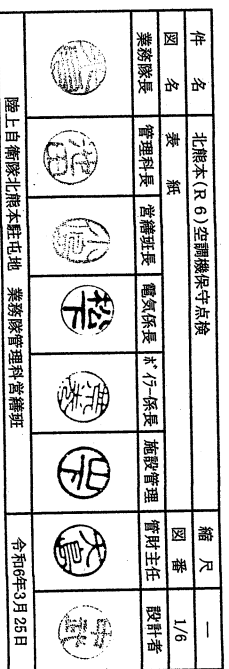 件名 北熊本(R6)空調機保守点検 縮尺 ―
図名 表紙 図番 1/6
業務隊長 管理科長 営繕班長 電気係長 ボイラー係長 施設管理 管財主任 設計者
池田 松下 山下 大島
陸上自衛隊北熊本駐屯地 業務隊管理科営繕班 令和6年3月25日